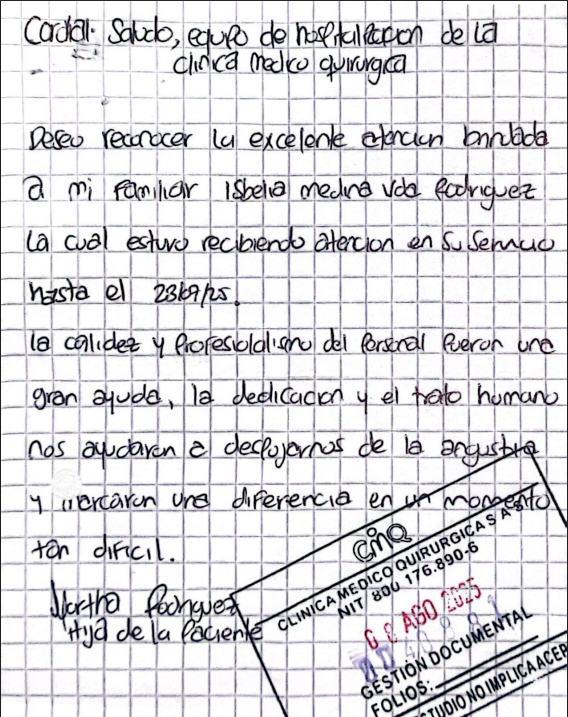 Cordial Saludo, equipo de hospitalizacion de la
clinica medico quirurgica
Deseo reconocer la excelente atencion brindada
a mi familiar Isbelia medina vda Rodriguez
la cual estuvo recibiendo atencion en su servicio
hasta el
la calidez y Profesiolalismo del Personal fueron una
gran ayuda, la dedicacion y el trato humano
nos ayudaron a despojarnos de la angustia
y marcaron una diferencia en un momento
tan dificil.
Martha Rodriguez
Hija de la Paciente
CMQ
CLINICA MEDICO QUIRURGICA S A
NIT 800 176.890-6
AGO 2025
GESTION DOCUMENTAL
FOLIOS:
NO IMPLICA ACEP